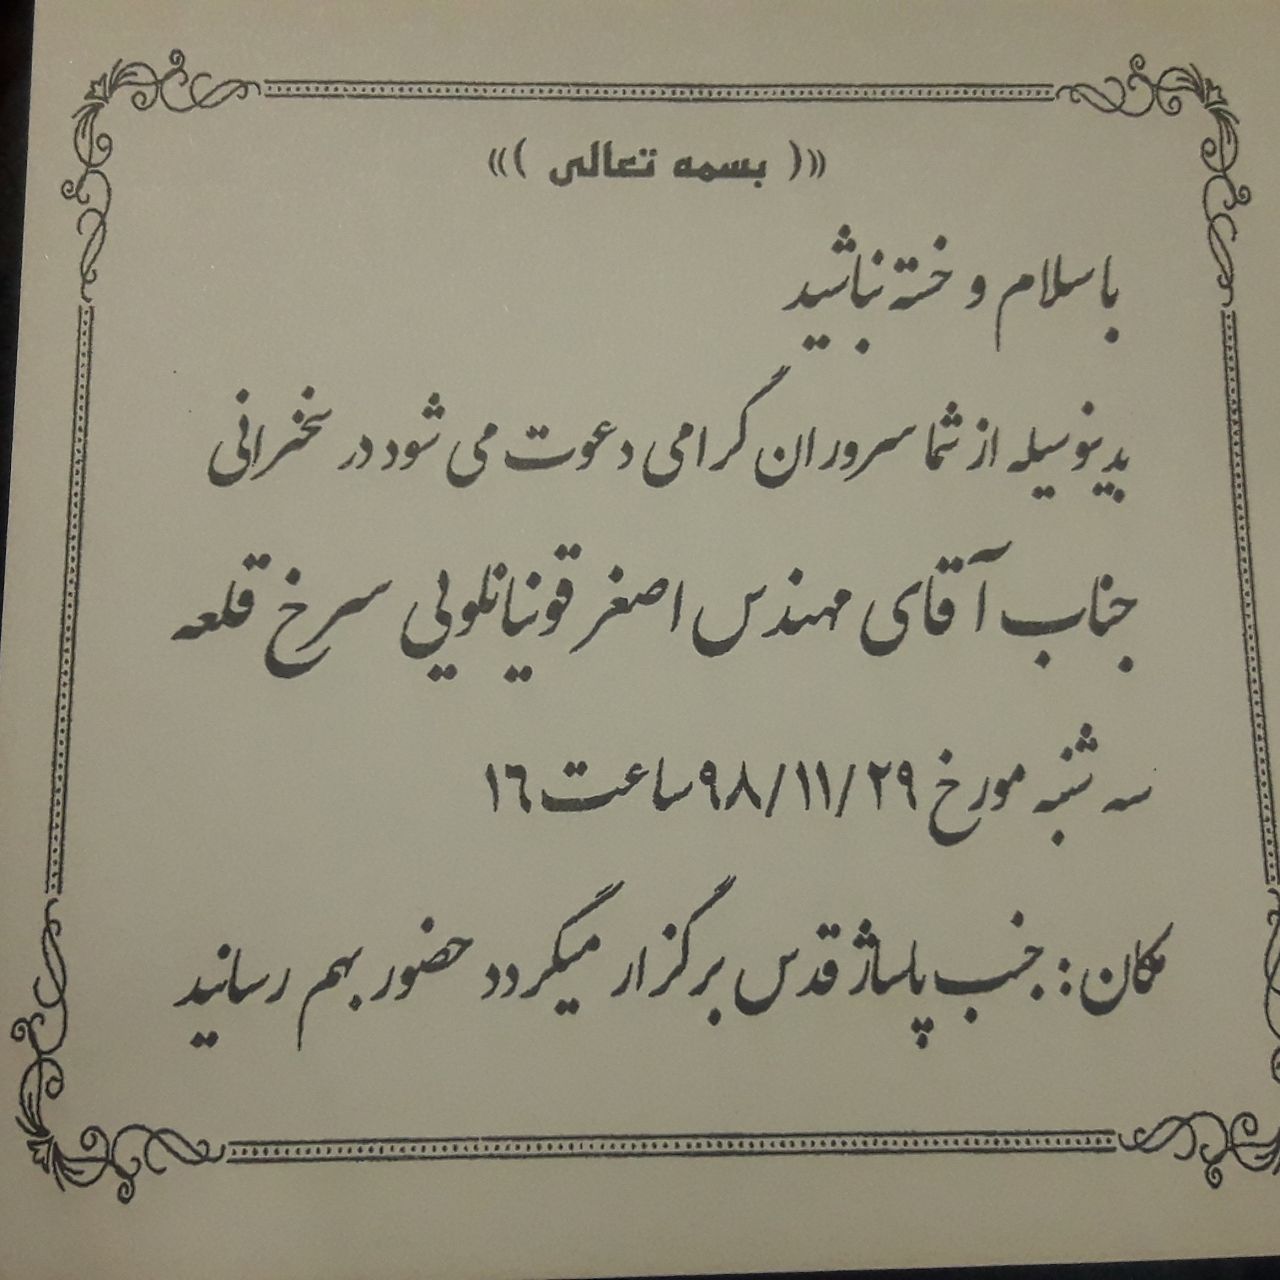 «( بسمه تعالی )»
با سلام و خسته نباشید
بدینوسیله از شما سروران گرامی دعوت می شود در سخنرانی
جناب آقای مهندس اصغر قوینانلویی سرخ قلعه
سه شنبه مورخ ۹۸/۱۱/۲۹ ساعت ۱۶
مکان : جنب پاساژ قدس برگزار میگردد حضور بهم رسانید